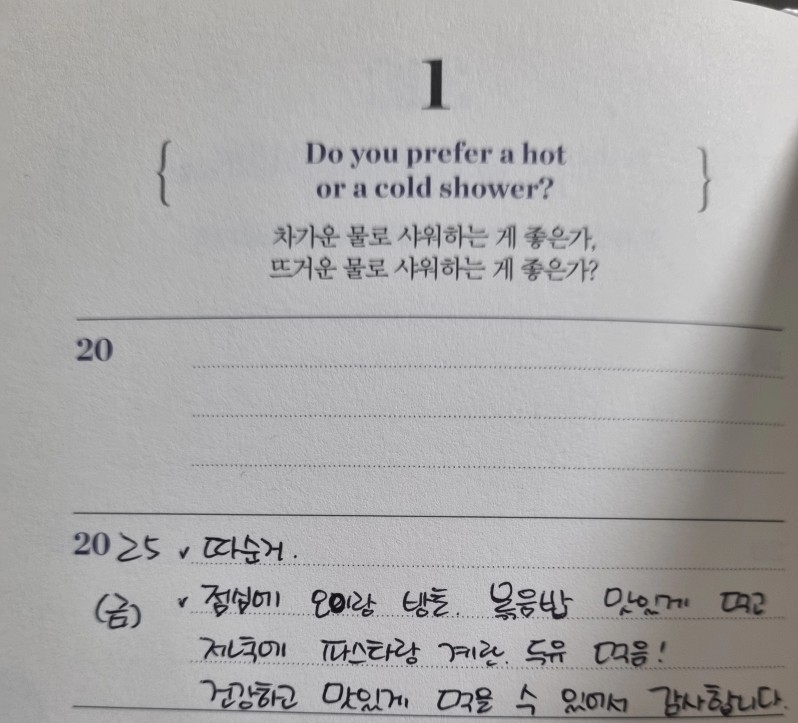 1
Do you prefer a hot
or a cold shower?
차가운 물로 샤워하는 게 좋은가,
뜨거운 물로 샤워하는 게 좋은가?
20
2025 v 따순거.
(금) v 점심에 오이랑 방토. 볶음밥 맛있게 먹고
저녁에 파스타랑 계란. 두유 먹음!
건강하고 맛있게 먹을 수 있어서 감사합니다.